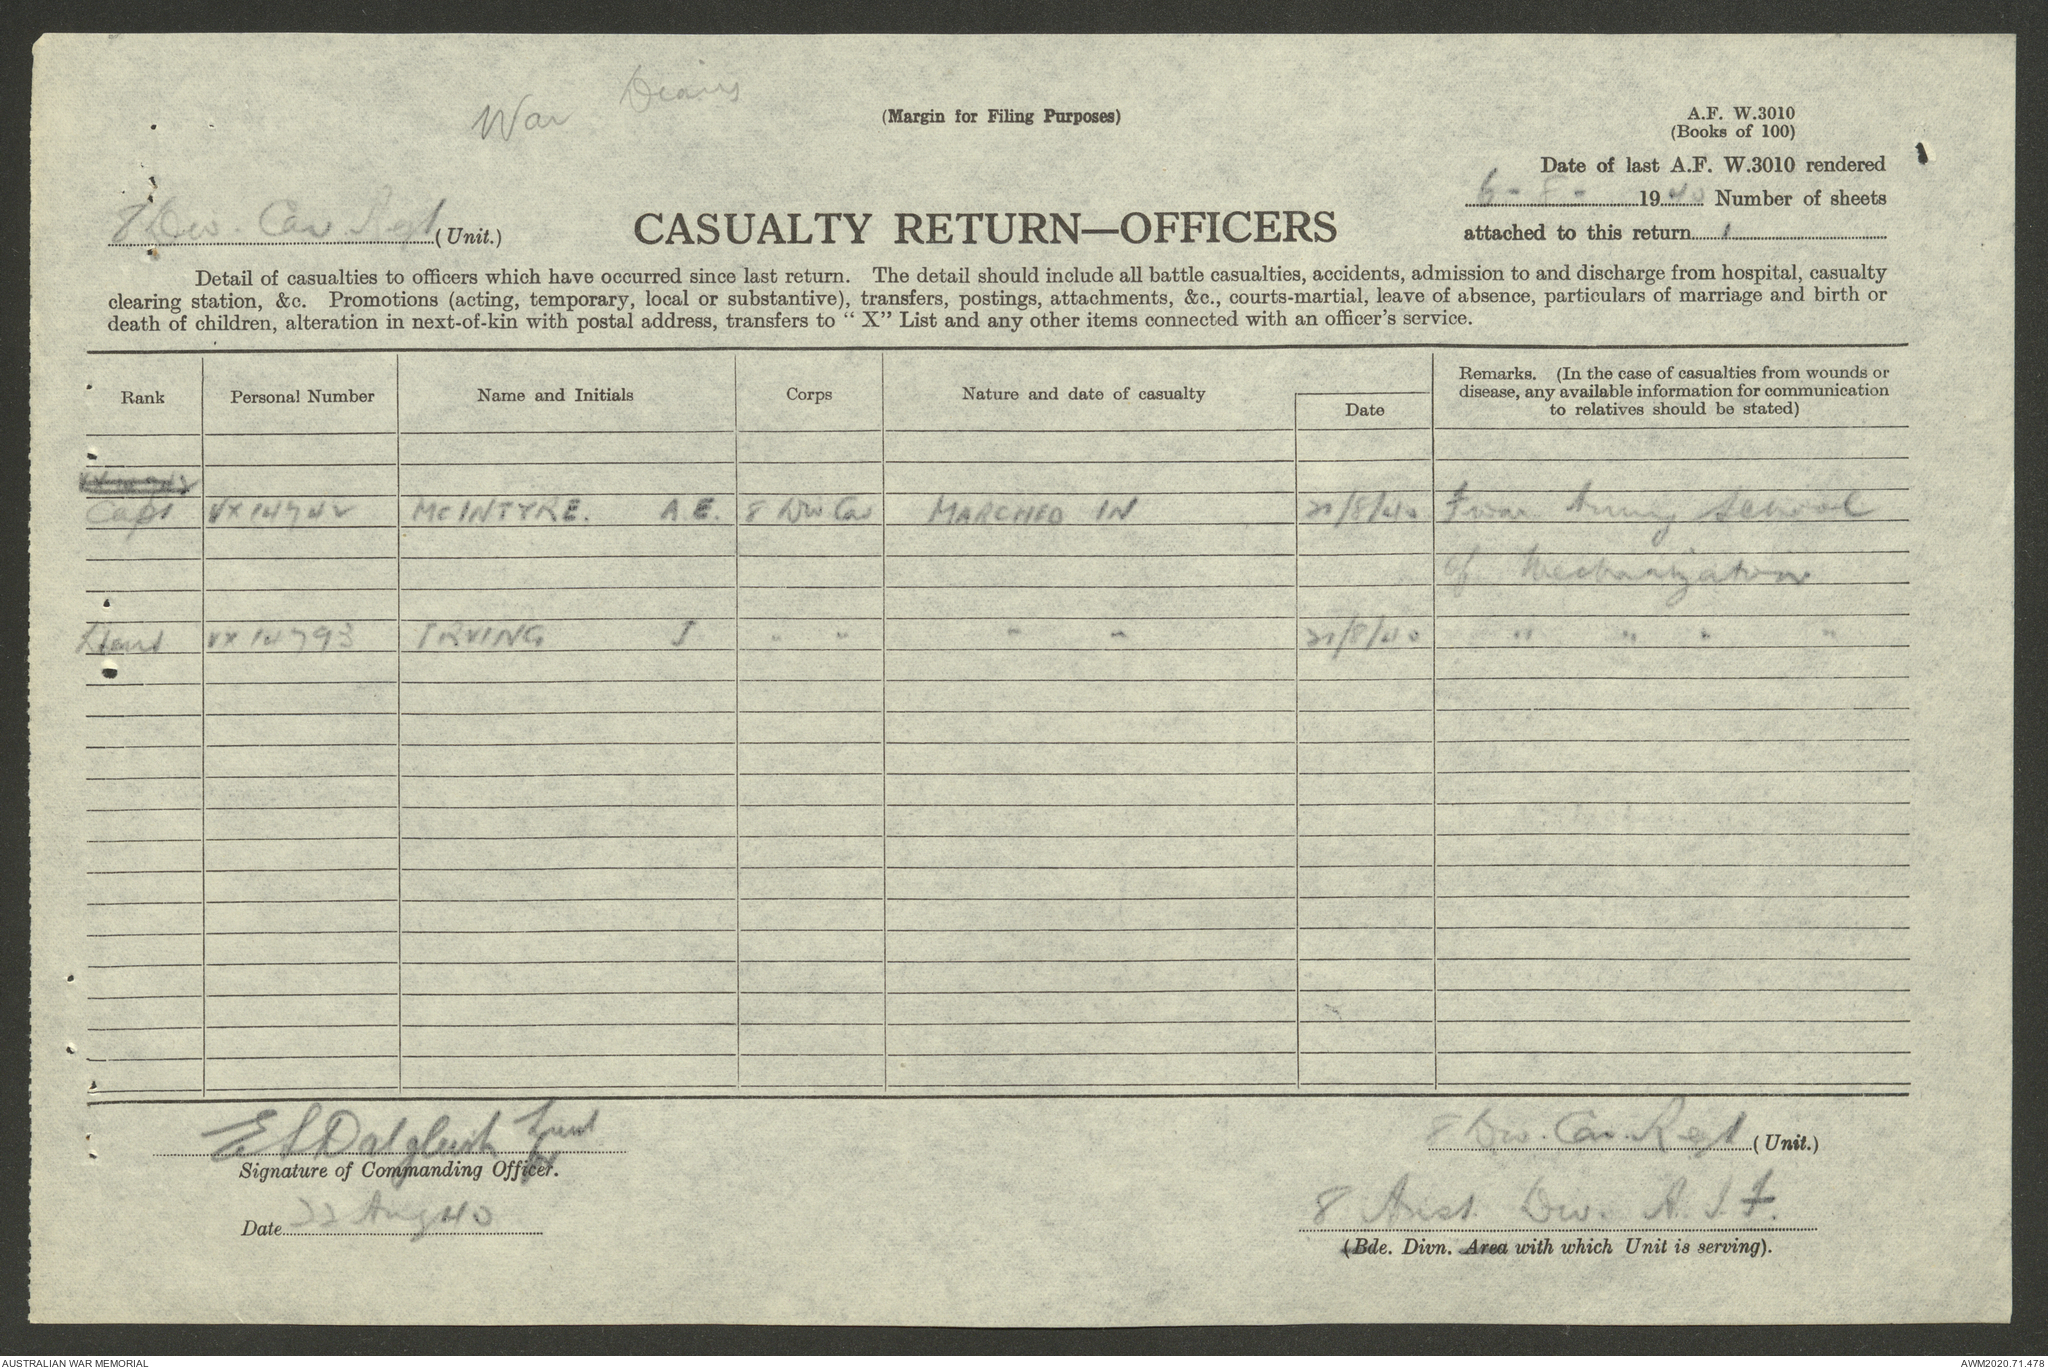 War Diary
(Margin for Filing Purposes)
A.F. W.3010
(Books of 100)
Date of last A.F. W.3010 rendered
6 - 8 - 1940 Number of sheets
attached to this return 1
8 Div. Cav Regt (Unit.)
CASUALTY RETURN—OFFICERS
Detail of casualties to officers which have occurred since last return. The detail should include all battle casualties, accidents, admission to and discharge from hospital, casualty
clearing station, &c. Promotions (acting, temporary, local or substantive), transfers, postings, attachments, &c., courts-martial, leave of absence, particulars of marriage and birth or
death of children, alteration in next-of-kin with postal address, transfers to "X" List and any other items connected with an officer's service.
Rank Personal Number Name and Initials Corps Nature and date of casualty Date Remarks. (In the case of casualties from wounds or
disease, any available information for communication
to relatives should be stated)
Capt VX14742 McINTYRE. A.E. 8 Div Cav MARCHED IN 21/8/40 From Army School
of Mechanization
Lieut VX14793 IRVING J " " " " 21/8/40 " " " "
E S Dalgleish Lieut
Signature of Commanding Officer.
Date 22 Aug 40
8 Div. Cav. Regt (Unit.)
8 Aust. Div. A.I.F.
(Bde. Divn. Area with which Unit is serving).
AUSTRALIAN WAR MEMORIAL
AWM2020.71.478